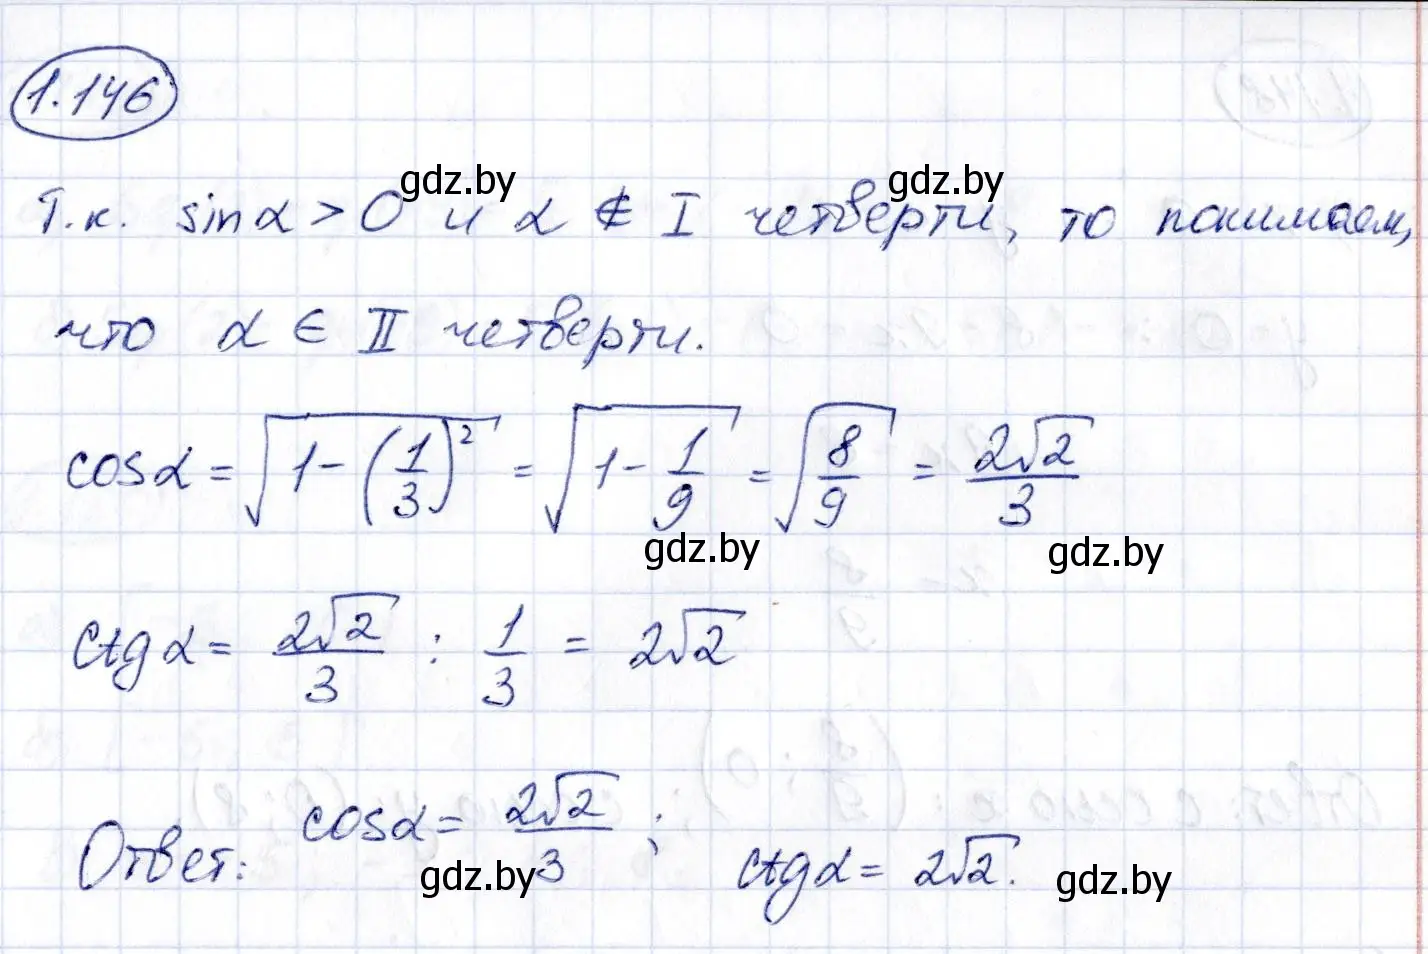 1.146
gdz.by gdz.by
Т.к. sinα > 0 и α ∉ I четверти, то понимаем,
что α ∈ II четверти.
cosα = √(1 - (1/3)²) = √(1 - 1/9) = √(8/9) = 2√2/3
gdz.by gdz.by
ctgα = 2√2/3 : 1/3 = 2√2
Ответ: cosα = 2√2/3; ctgα = 2√2.
gdz.by gdz.by